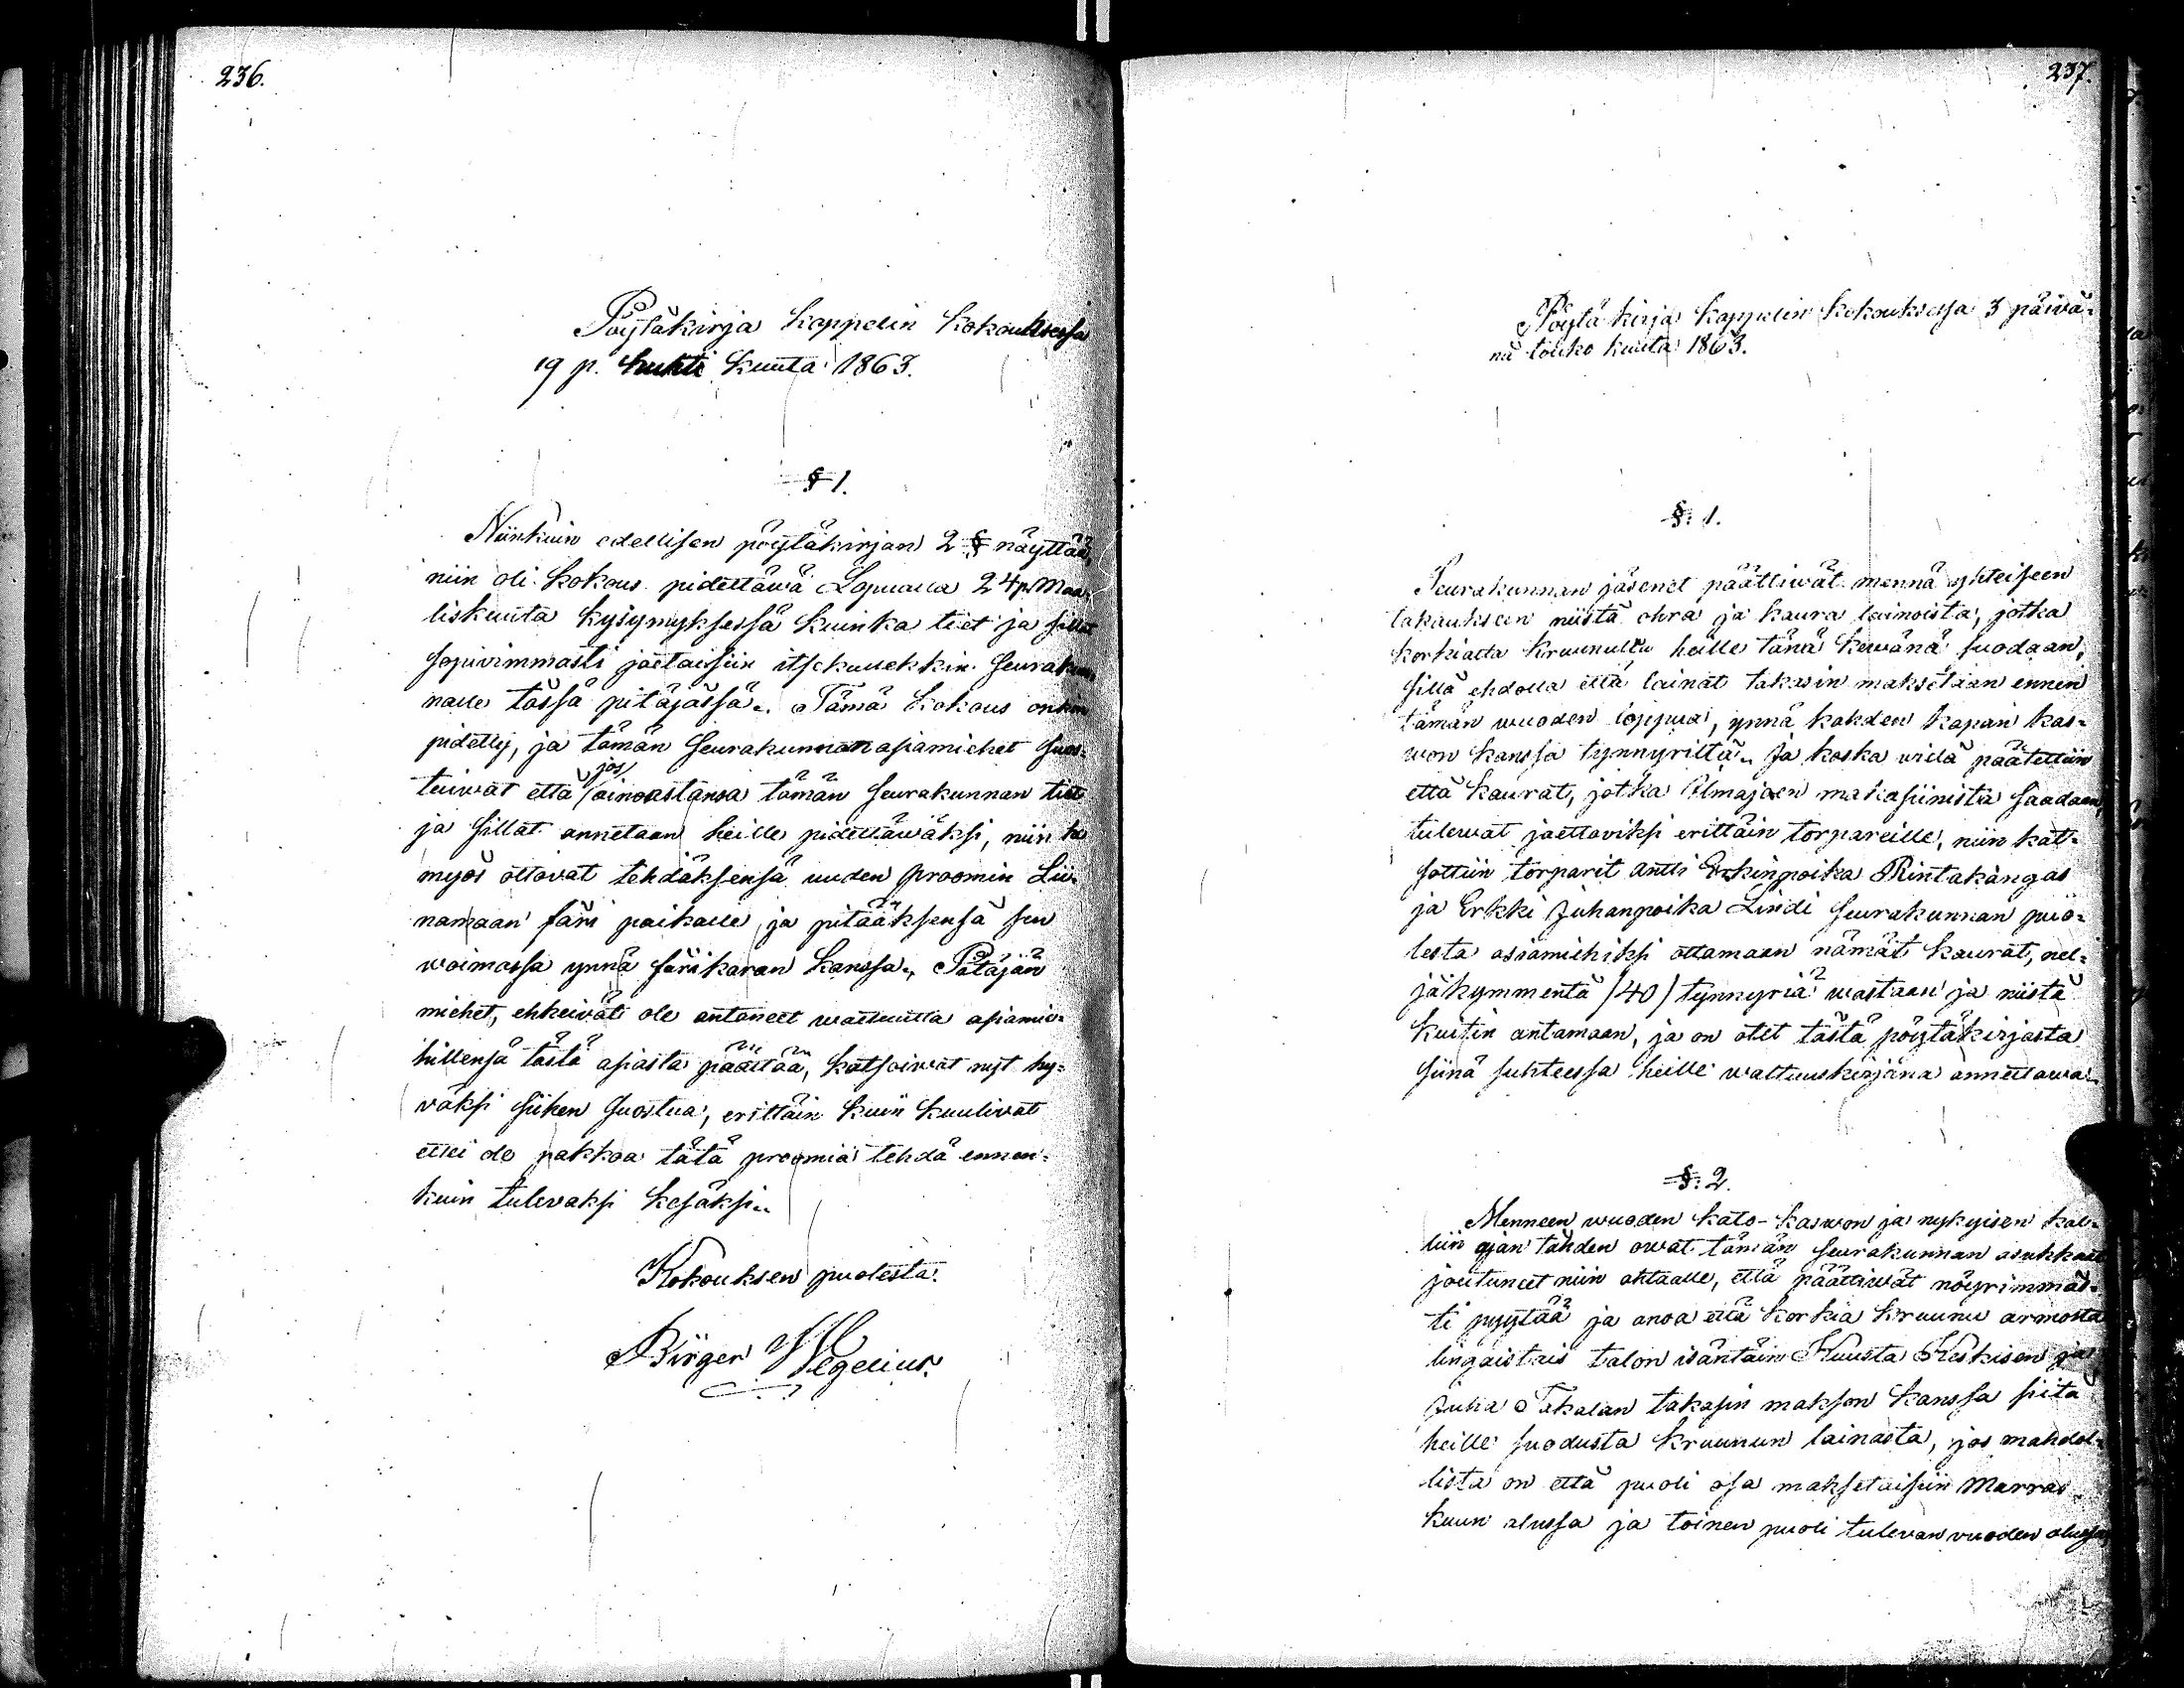 236.
Pöytäkirja Kappelin Kokouksessa
19 p. huhti Kuuta 1863.
§ 1.
Niinkuin edellisen pöytäkirjan 2 § näyttää,
niin oli Kokous pidettäwä Lapualla 24 p. Maa-
liskuuta kysymyksessä kuinka tiet ja sillat
sopivimmasti jaettaisiin itsekullekkin Seurakun-
nalle tässä pitäjässä. Tämä Kokous onkin
pidetty, ja tämän Seurakunnan asiamiehet suos-
tuiwat että jos ainoastansa tämän Seurakunnan tiet
ja sillat annetaan heille pidettäwäksi, niin he
myös ottavat tehdäksensä uuden proomin Lii-
namaan färi paikalle ja pitääksensä sen
woimassa ynnä färikaran Kanssa. Pitäjän
miehet, ehkeiwät ole antaneet waltuutta asiamie-
hillensä tästä asiasta päättää, katsoiwat nyt hy-
väksi siihen suostua, erittäin kuin kuulivat
ettei ole pakkoa tätä proomia tehdä ennen-
kuin tulevaksi kesäksi.
Kokouksen puolesta:
Birger Wegelius.
237.
Pöytä kirja Kappelin Kokouksessa 3 päivä-
nä touko kuuta 1863.
§. 1.
Seurakunnan jäsenet päättiwät mennä yhteiseen
takaukseen niistä ohra ja kaura lainoista, jotka
korkialta Kruunulta heille tänä kewänä suodaan,
sillä ehdolla että lainat takasin maksetaan ennen
tämän wuoden loppua, ynnä kahden kapan kas-
won kanssa tynnyriltä. Ja koska wielä päätettiin
että kaurat, jotka Ilmajoen makasiinista saadaan,
tulewat jaettaviksi erittäin torpareille, niin kat-
sottiin torparit Antti Erkinpoika Rintakangas
ja Erkki Juhanpoika Lindi Seurakunnan puo-
lesta asiamiehiksi ottamaan nämät kaurat, nel-
jäkymmentä /40/ tynnyriä wastaan ja niistä
kuitin antamaan, ja on otet tästä pöytäkirjasta
siinä suhteessa heille waltuuskirjana annettawa.
§. 2.
Menneen wuoden kato-kaswon ja nykyisen kal-
liin ajan tähden owat tämän Seurakunnan asukkaat
joutuneet niin ahtaalle, että päättiwät nöyrimmäs-
ti pyytää ja anoa että korkia Kruunu armosta
lingäistäis talon isäntäin Kuusta Keskisen ja
Juha Takalan takasin makson kanssa siitä
heille suodusta Kruunun lainasta, jos mahdol-
lista on että puoli osa maksetaisiin Marras-
kuun alussa ja toinen puoli tulevan vuoden alussa,